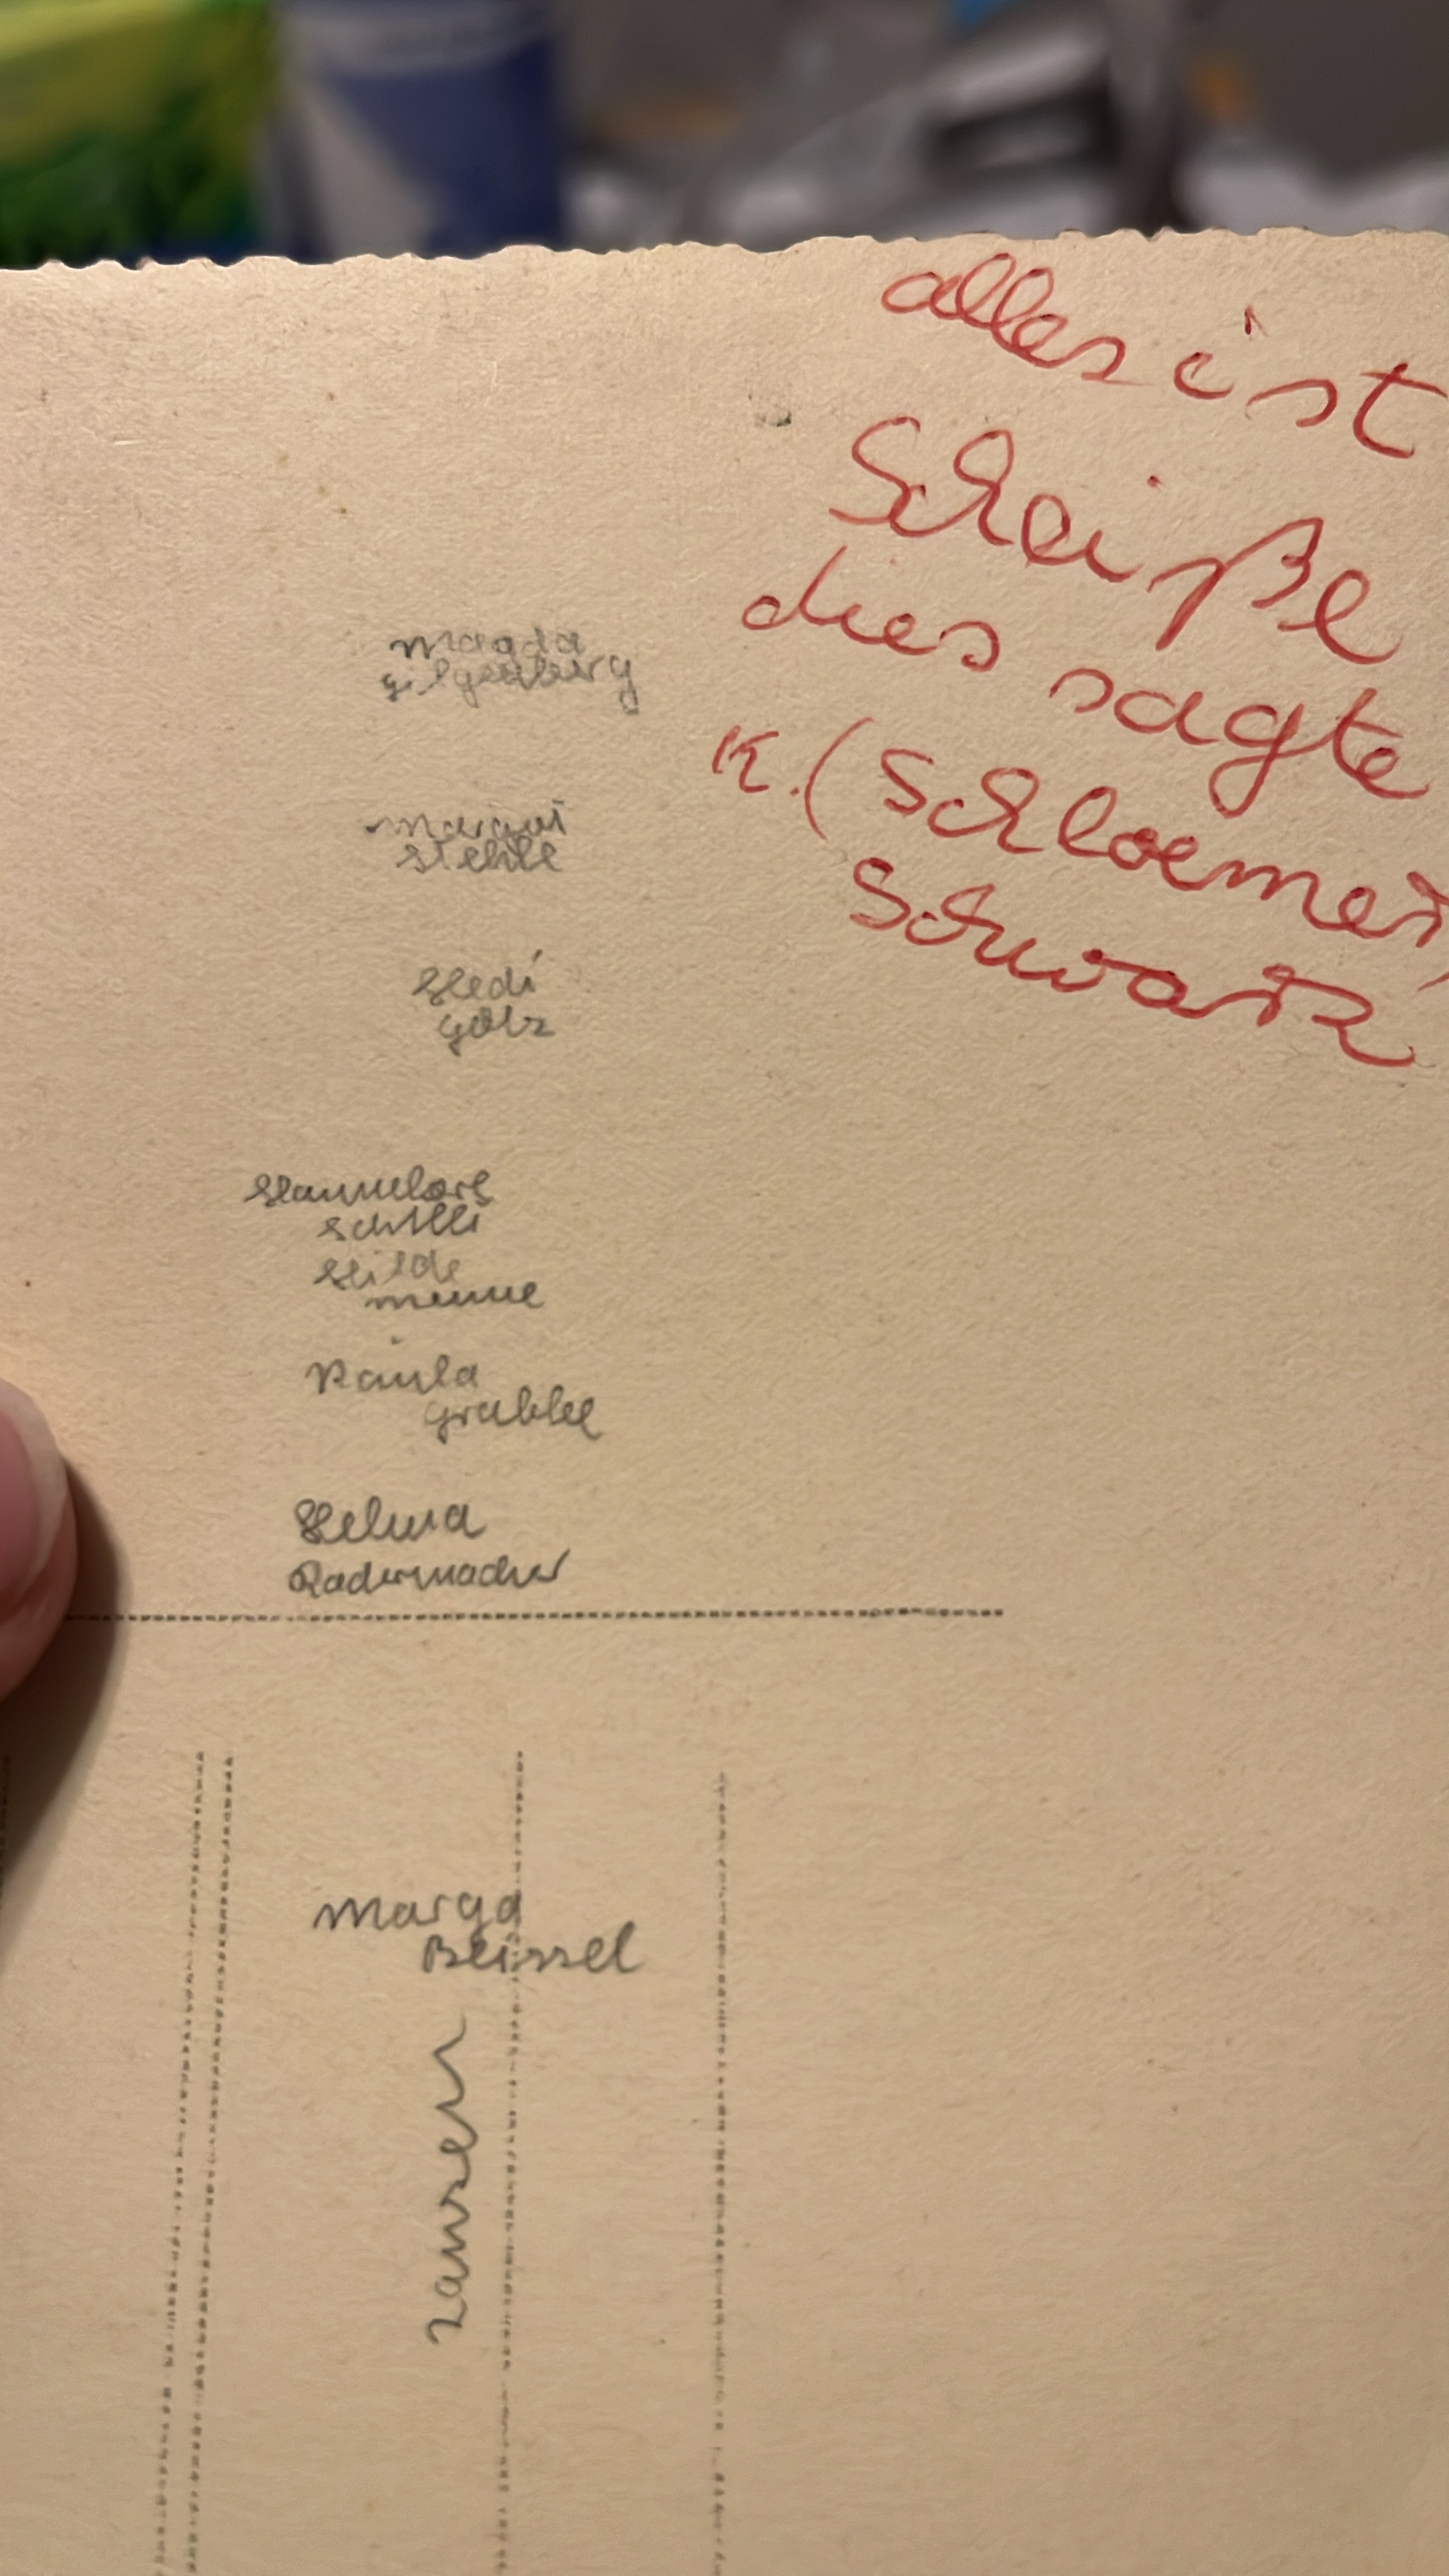 alles ist
Scheiße
dies sagte
K. (Schloemer)
Schwarz
Magda
Hilgenberg
Margot
Stehle
Hedi
Götz
Hannelore
Schilli
Hilde
Menne
Paula
Grabbe
Helma
Radermacher
Marga
Beissel